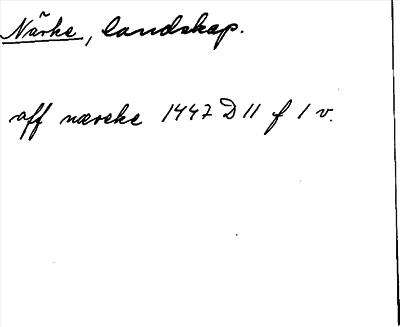 Närke, landskap.
aff næreke 1447 D 11 f 1 v.